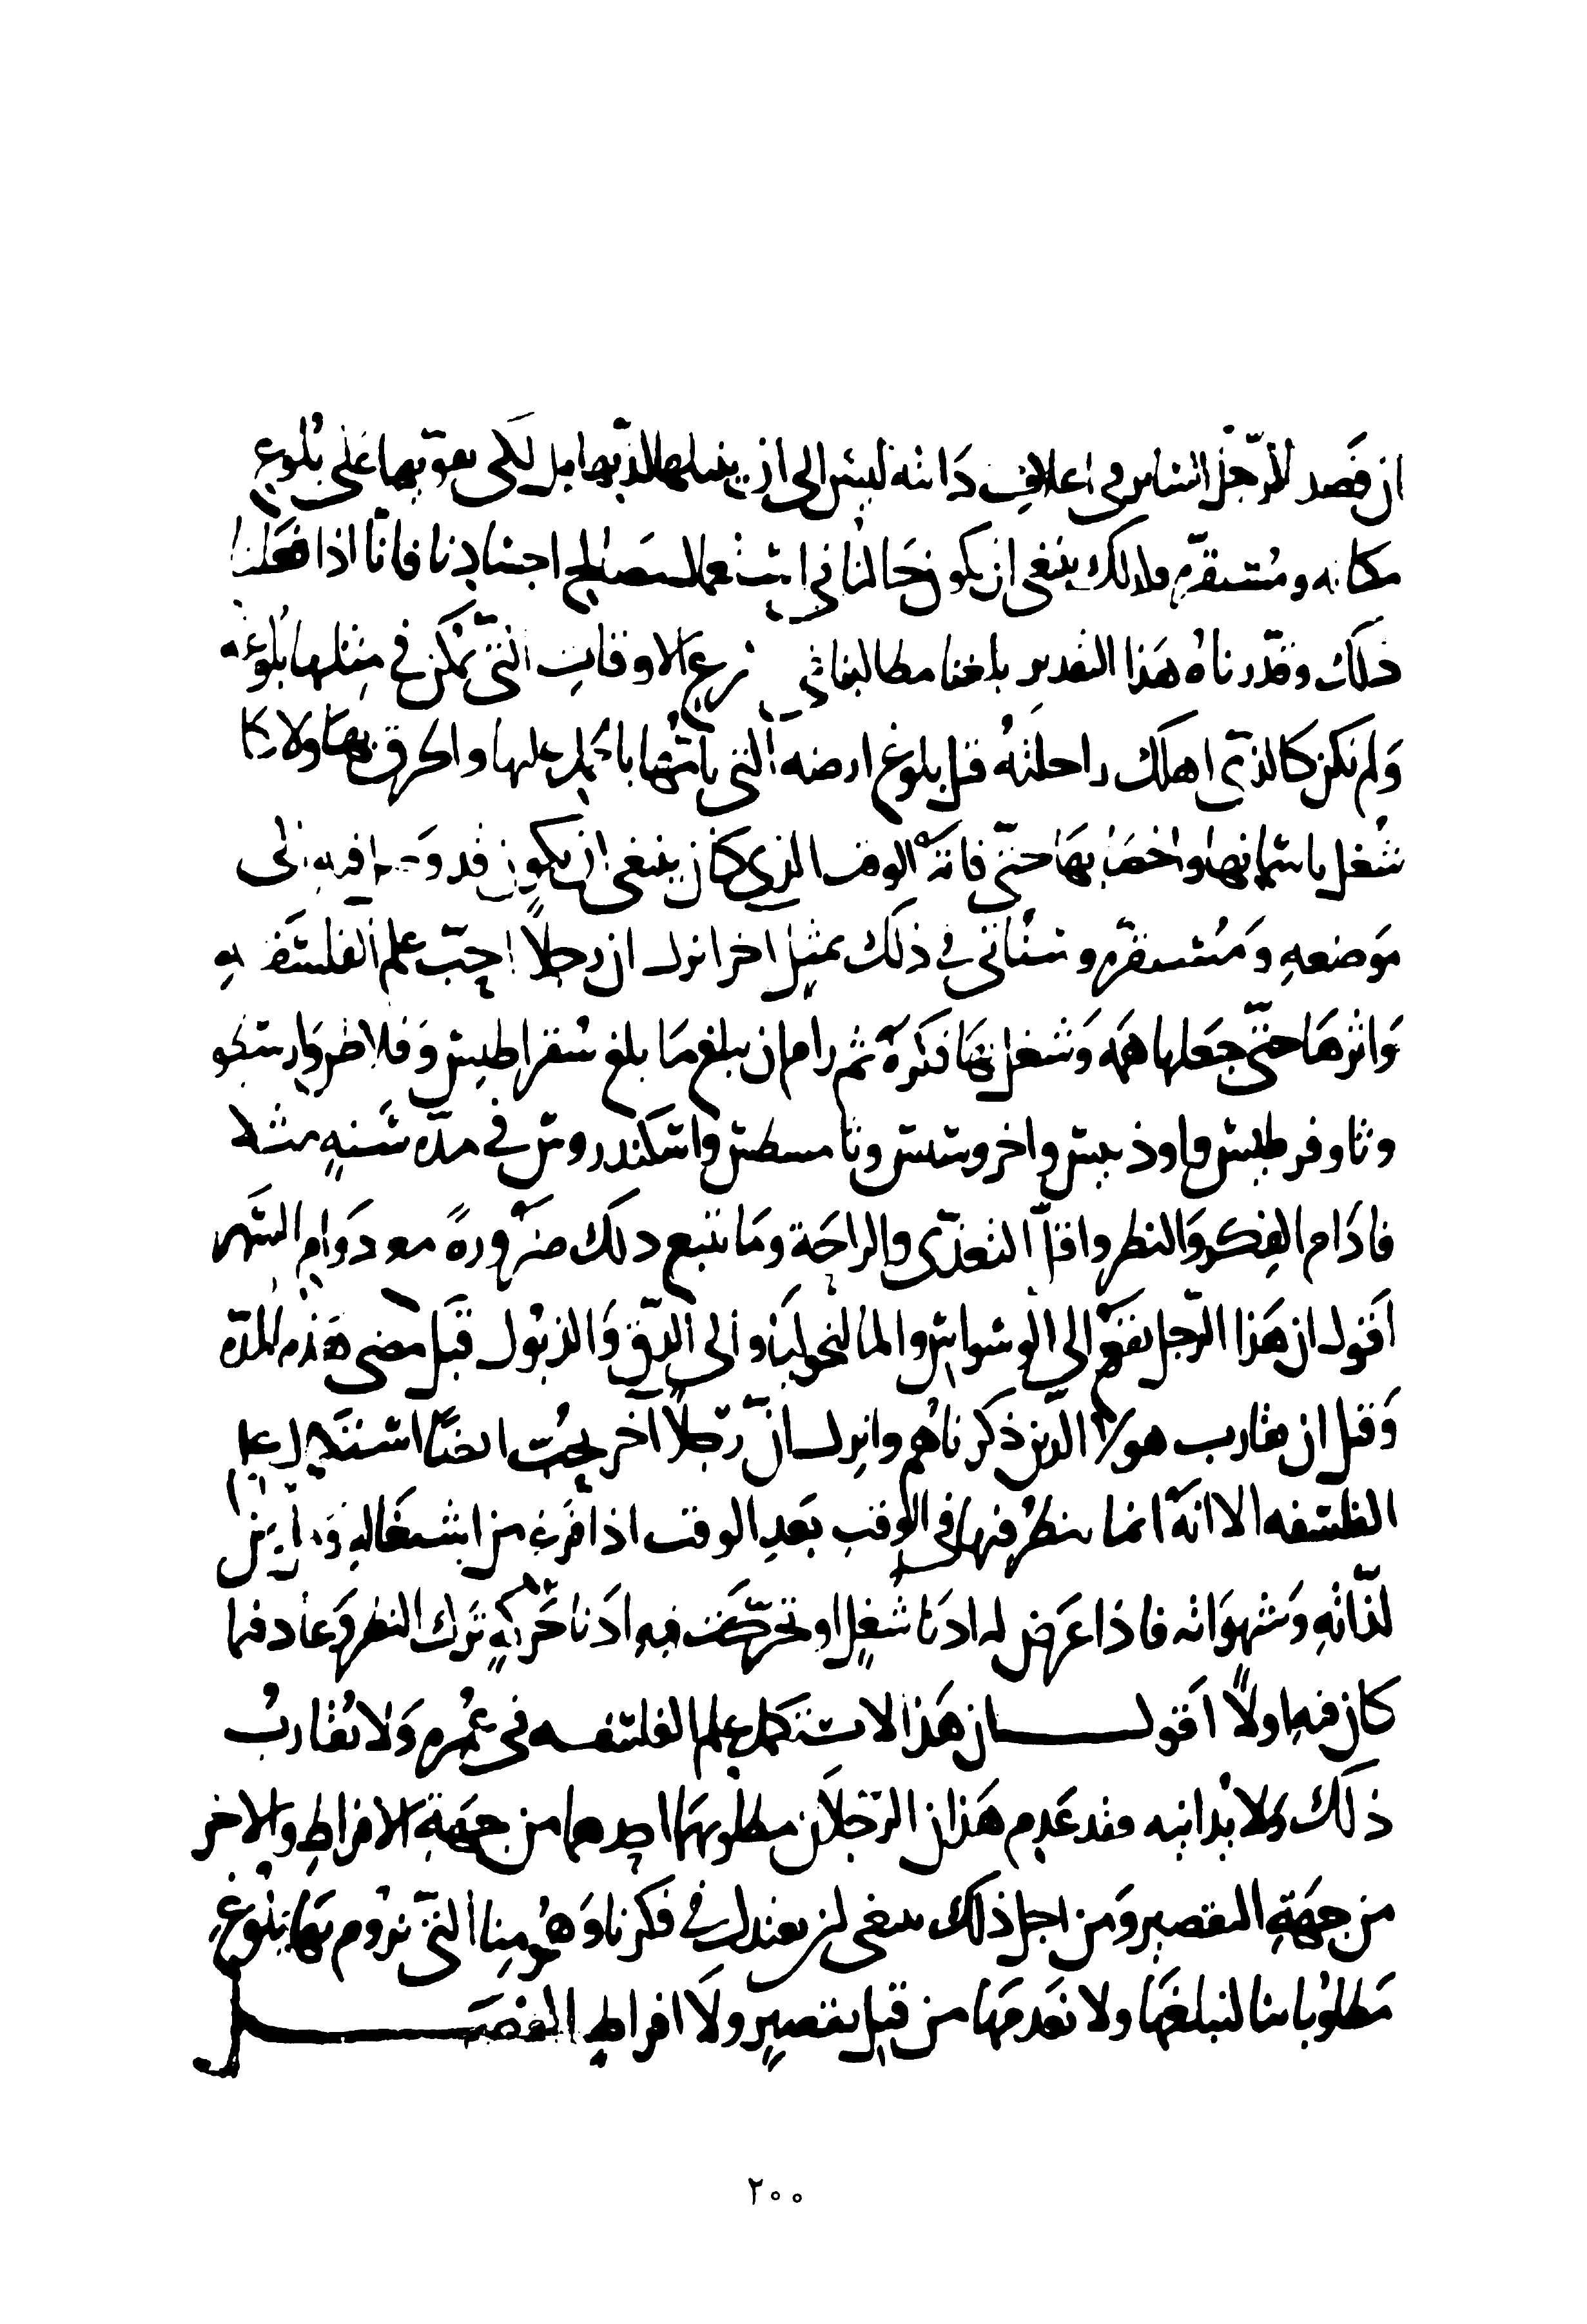 ان قصد الرجل المسافر في اعلاف دابته ليس الى ان ينيلها لذتها بل لكي يقوّيها على بلوغ
مكانه ومستقرّه ولذلك ينبغي ان يكون حالنا في استعمال مصالح اجسادنا فانّا اذا فعلنا
ذلك وقدّرناه هذا التقدير بلغنا مطالبنا في اسرع الاوقات التي يمكن في مثلها بلوغه
ولم نكن كالذي اهلك راحلته قبل بلوغ ارضه التي يأتيها بالحمل عليها والخرق بها ولا كالذي
شغل باسمانها واخصابها حتّى فاته الوقت الذي كان ينبغي ان يكون قد وصل فيه الى
موضعه ومستقرّه وسنأتي في ذلك بمثل آخر انزل ان رجلاً احبّ علم الفلسفة
وآثرها حتّى جعلها همه وشغل بها فكره ثم رام ان يبلغ ما بلغ سقراطيس وفلاطن وارسطو
وثاوفرسطيس واوذيمس واخروسبس وثامسطيس واسكندروس في مدّة سنةٍ مثلا
فادام الفكر والنظر واقلّ التغذّي والراحة وما يتبع ذلك ضرورةً مع دوام السهر
اقول ان هذا الرّجل يقع الى الوسواس والمالنخوليا والى الدّق والذبول قبل مضي هذه المدّة
وقبل ان يقارب هؤلاء الذين ذكرناهم وانزل انّ رجلاً آخر يحبّ ايضاً استكمال علم
الفلسفه الا انه انما ينظر فيها في الوقت بعد الوقت اذا فرغ من اشغاله وملّ من
لذّاته وشهواته فاذا عرض له ادنا شغلٍ او تحرّكت فيه ادنا حركةٍ ترك النظر وعاد فيما
كان فيه اولاً اقول ان هذا لا يستكمل علم الفلسفه في عمره ولا يقارب
ذلك ولا يدانيه فقد عدم هذان الرّجلان مطلوبهما احدهما من جهة الافراط والاخر
من جهة التقصير ومن اجل ذلك ينبغي ان نعتدل في فكرنا وهمومنا التي نروم بها بلوغ
مطلوباتنا لنبلغها ولا نعدمها من قبل تقصيرٍ ولا افراطٍ الفصـل
٢٠٠